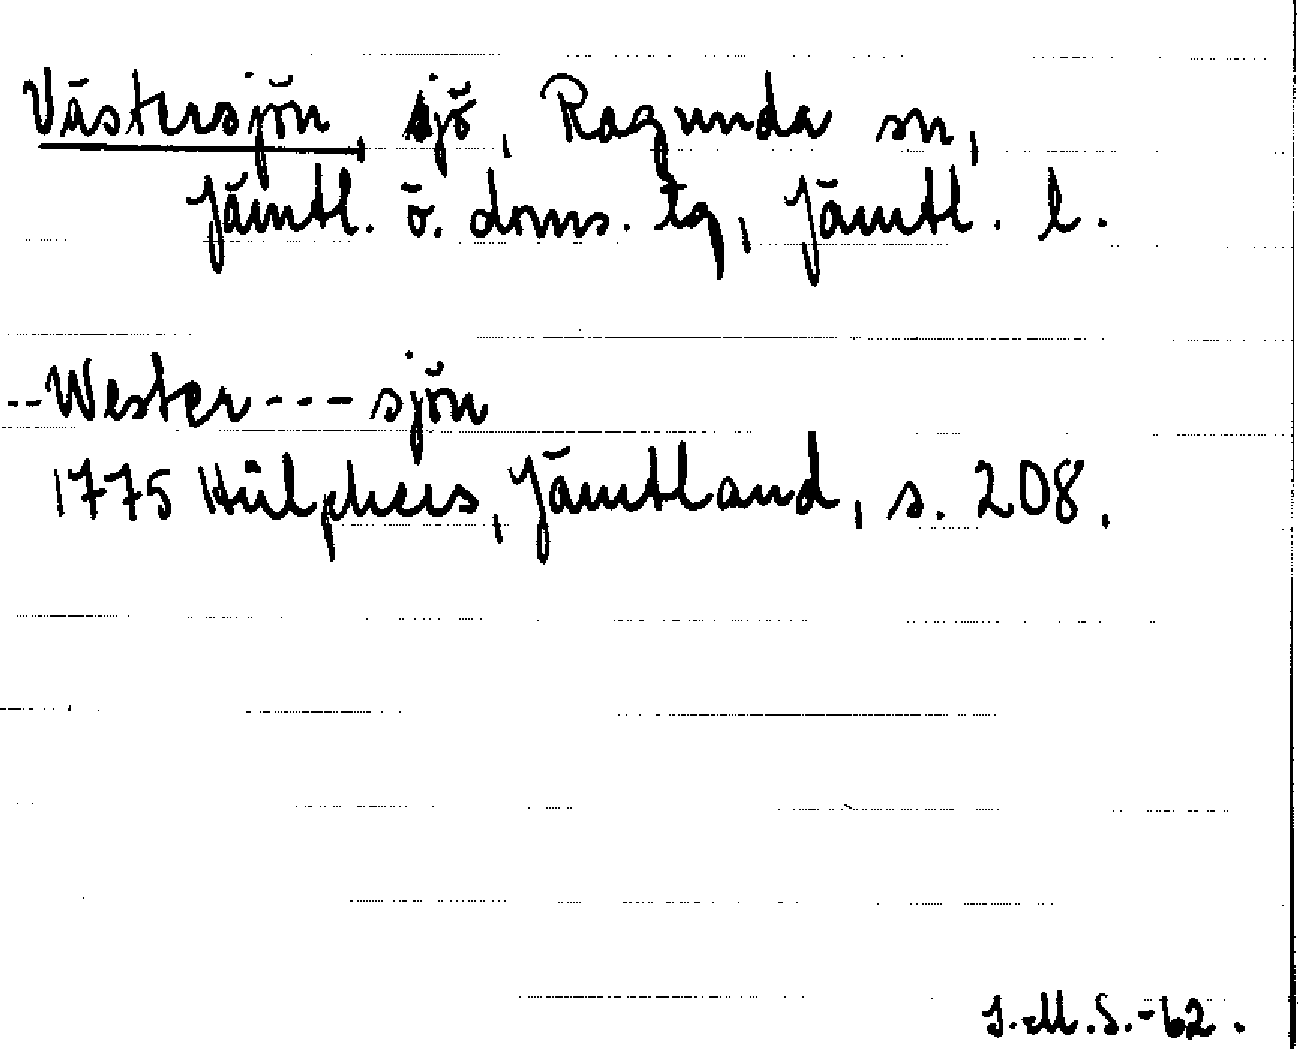 Västersjön, sjö, Ragunda sn,
Jämtl. ö. doms. tg, Jämtl. l.
--Wester---sjön
1775 Hülphers, Jämtland, s. 208.
I.M.S.-62.